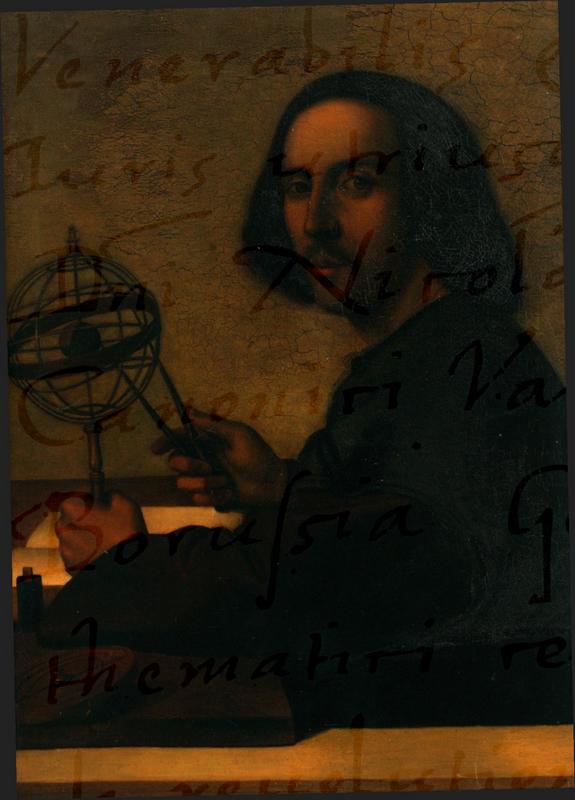 Venerabilis e
Iuris utriusq
Dni Nicola
Canonici Va
Borussia G
thematici re
de revolution